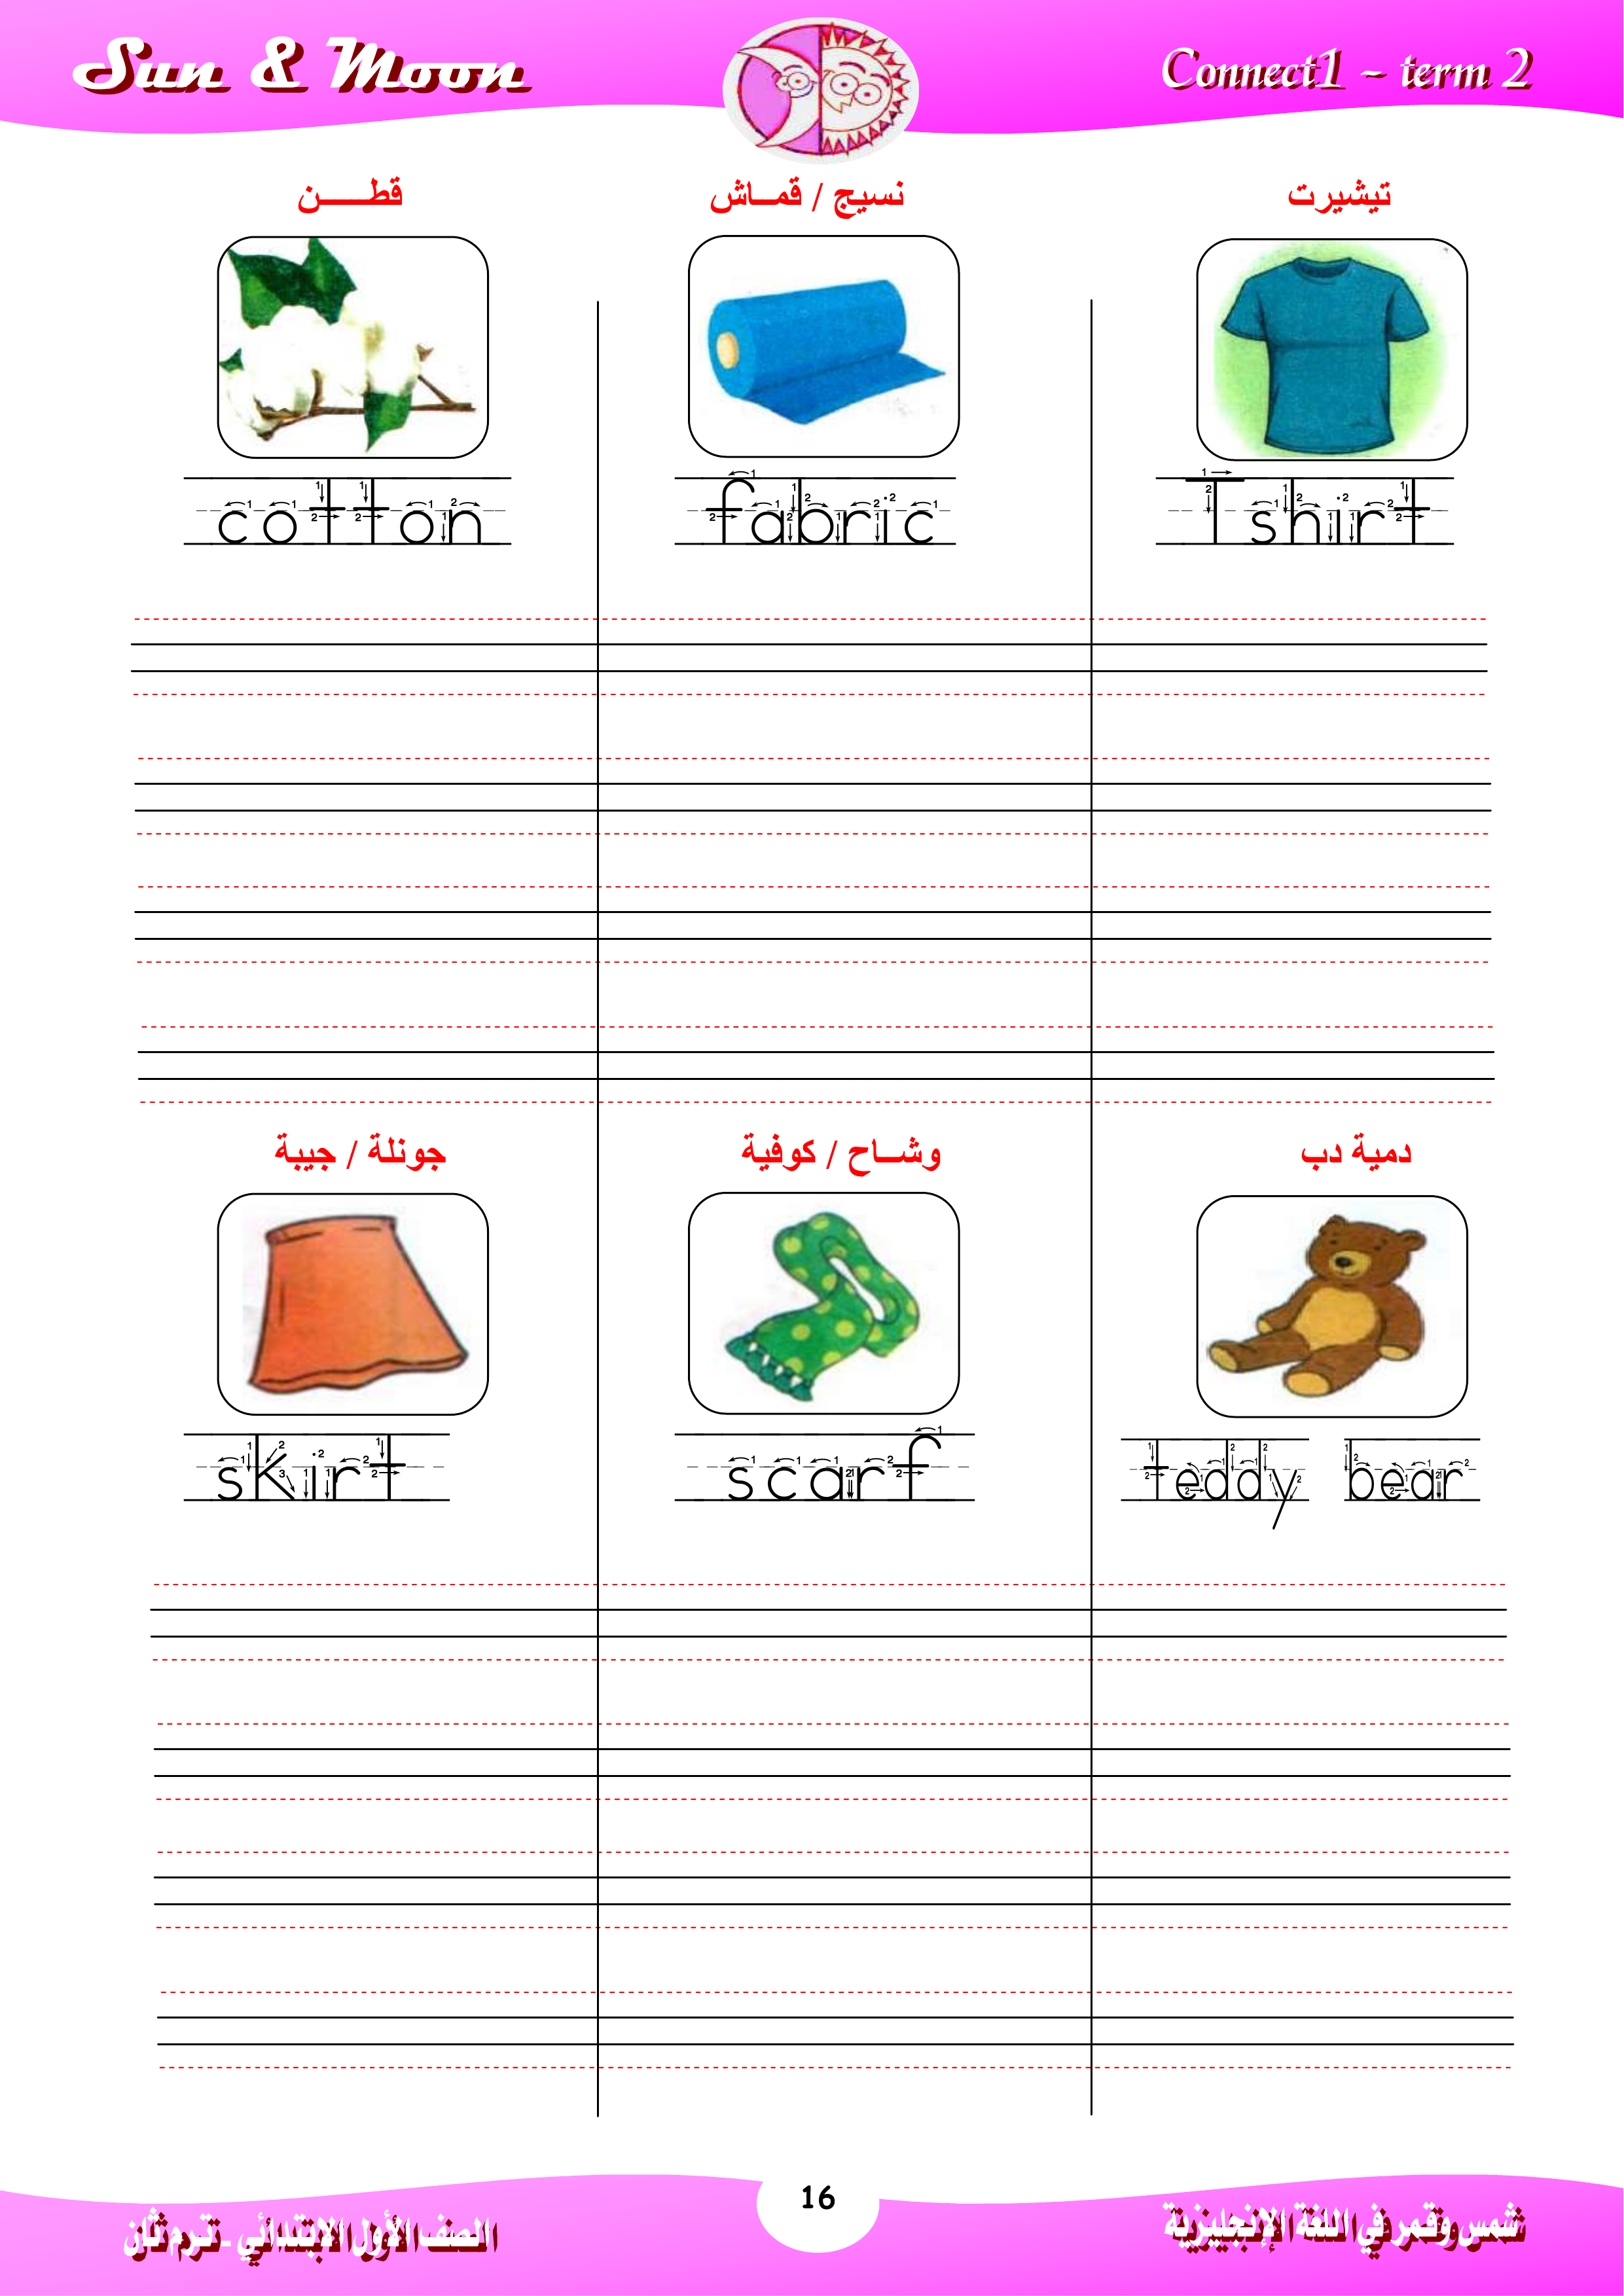 Sun & Moon
Connect1 - term 2
قطـــــن
نسيج / قمــاش
تيشيرت
cotton
fabric
Tshirt
جونلة / جيبة
وشــاح / كوفية
دمية دب
skirt
scarf
teddy bear
16
الصف الأول الابتدائي - ترم ثان
شمس وقمر في اللغة الإنجليزية